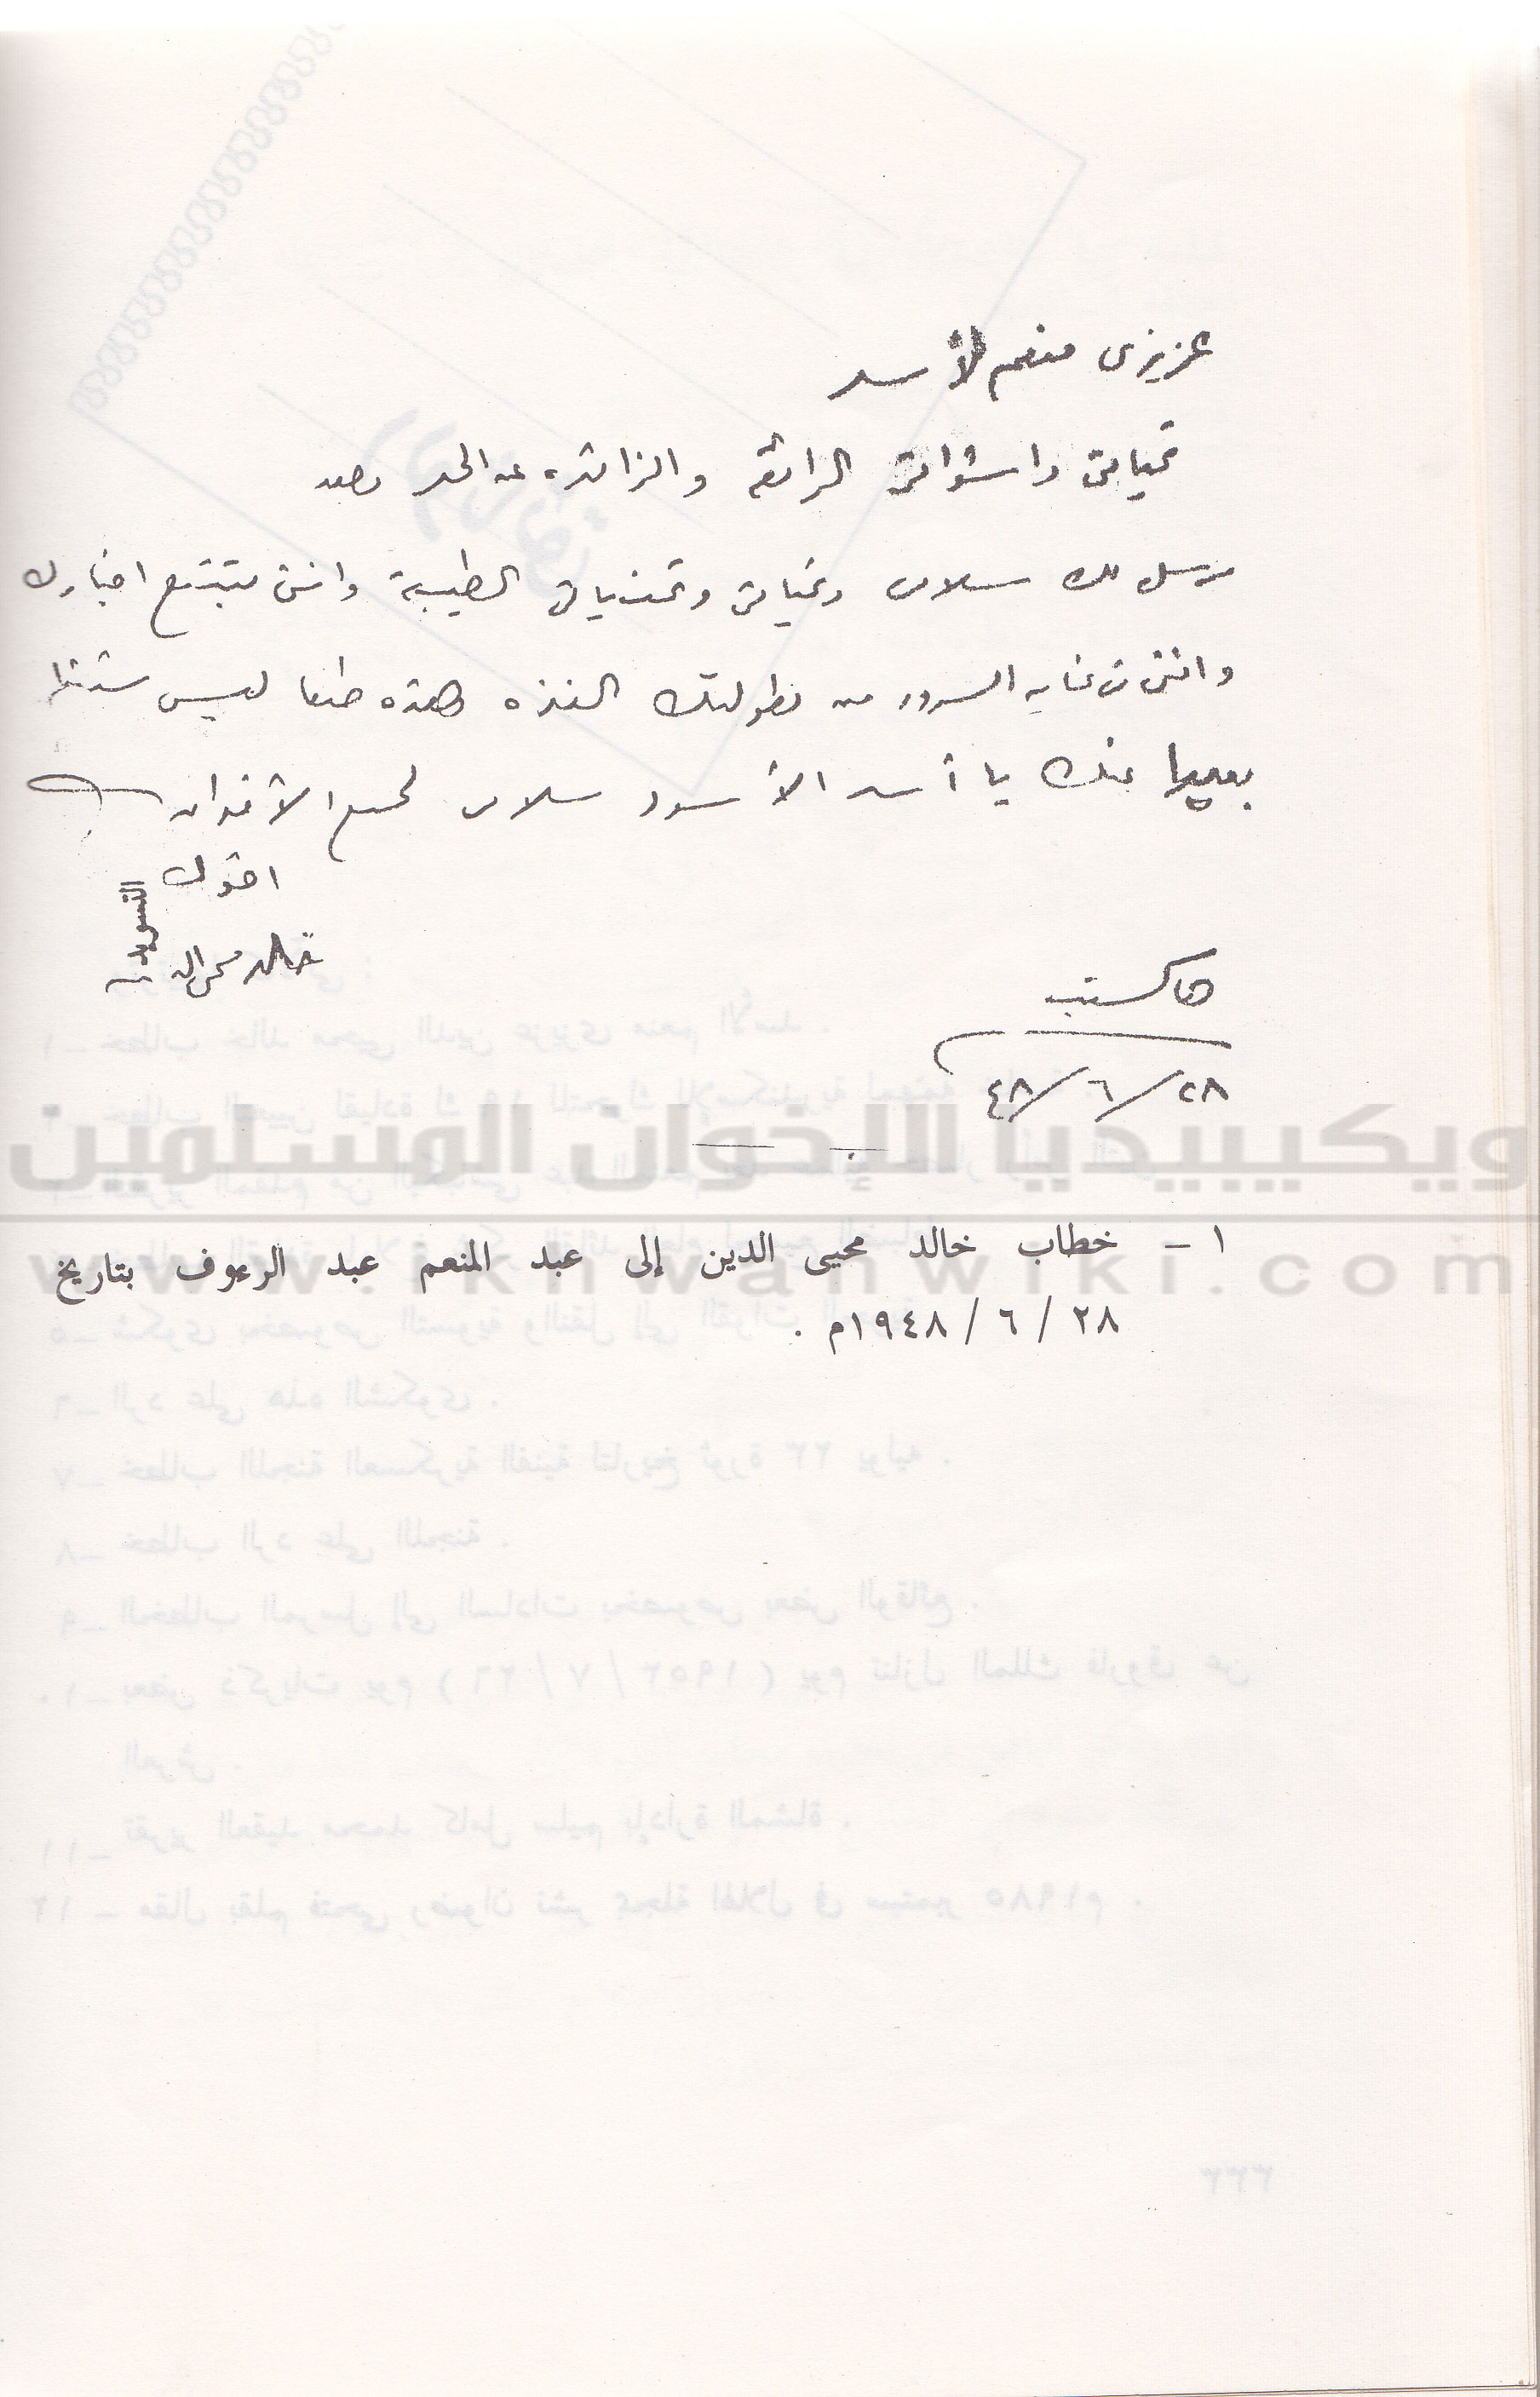 عزيزى منعم الأسد
تحياتى واشواقى الرائقه والزائده عن الحد وبعد
مرسل لك سلامى وتحياتى وتمنياتى الطيبة واننى متتبع اخبارك
واننى فى غايه السرور من بطولتك الفذه وهذه طبعا ليس مستغربا
بعيدا عنك يا أسد الأسود سلامى لجميع الأخوان
اخوك
خالد محى الدين
هاكستب
٢٨/٦/٤٨
ويكيبيديا الإخوان المسلمين
www.ikhwanwiki.com
١ - خطاب خالد محيى الدين إلى عبد المنعم عبد الرءوف بتاريخ
٢٨ / ٦ / ١٩٤٨م .